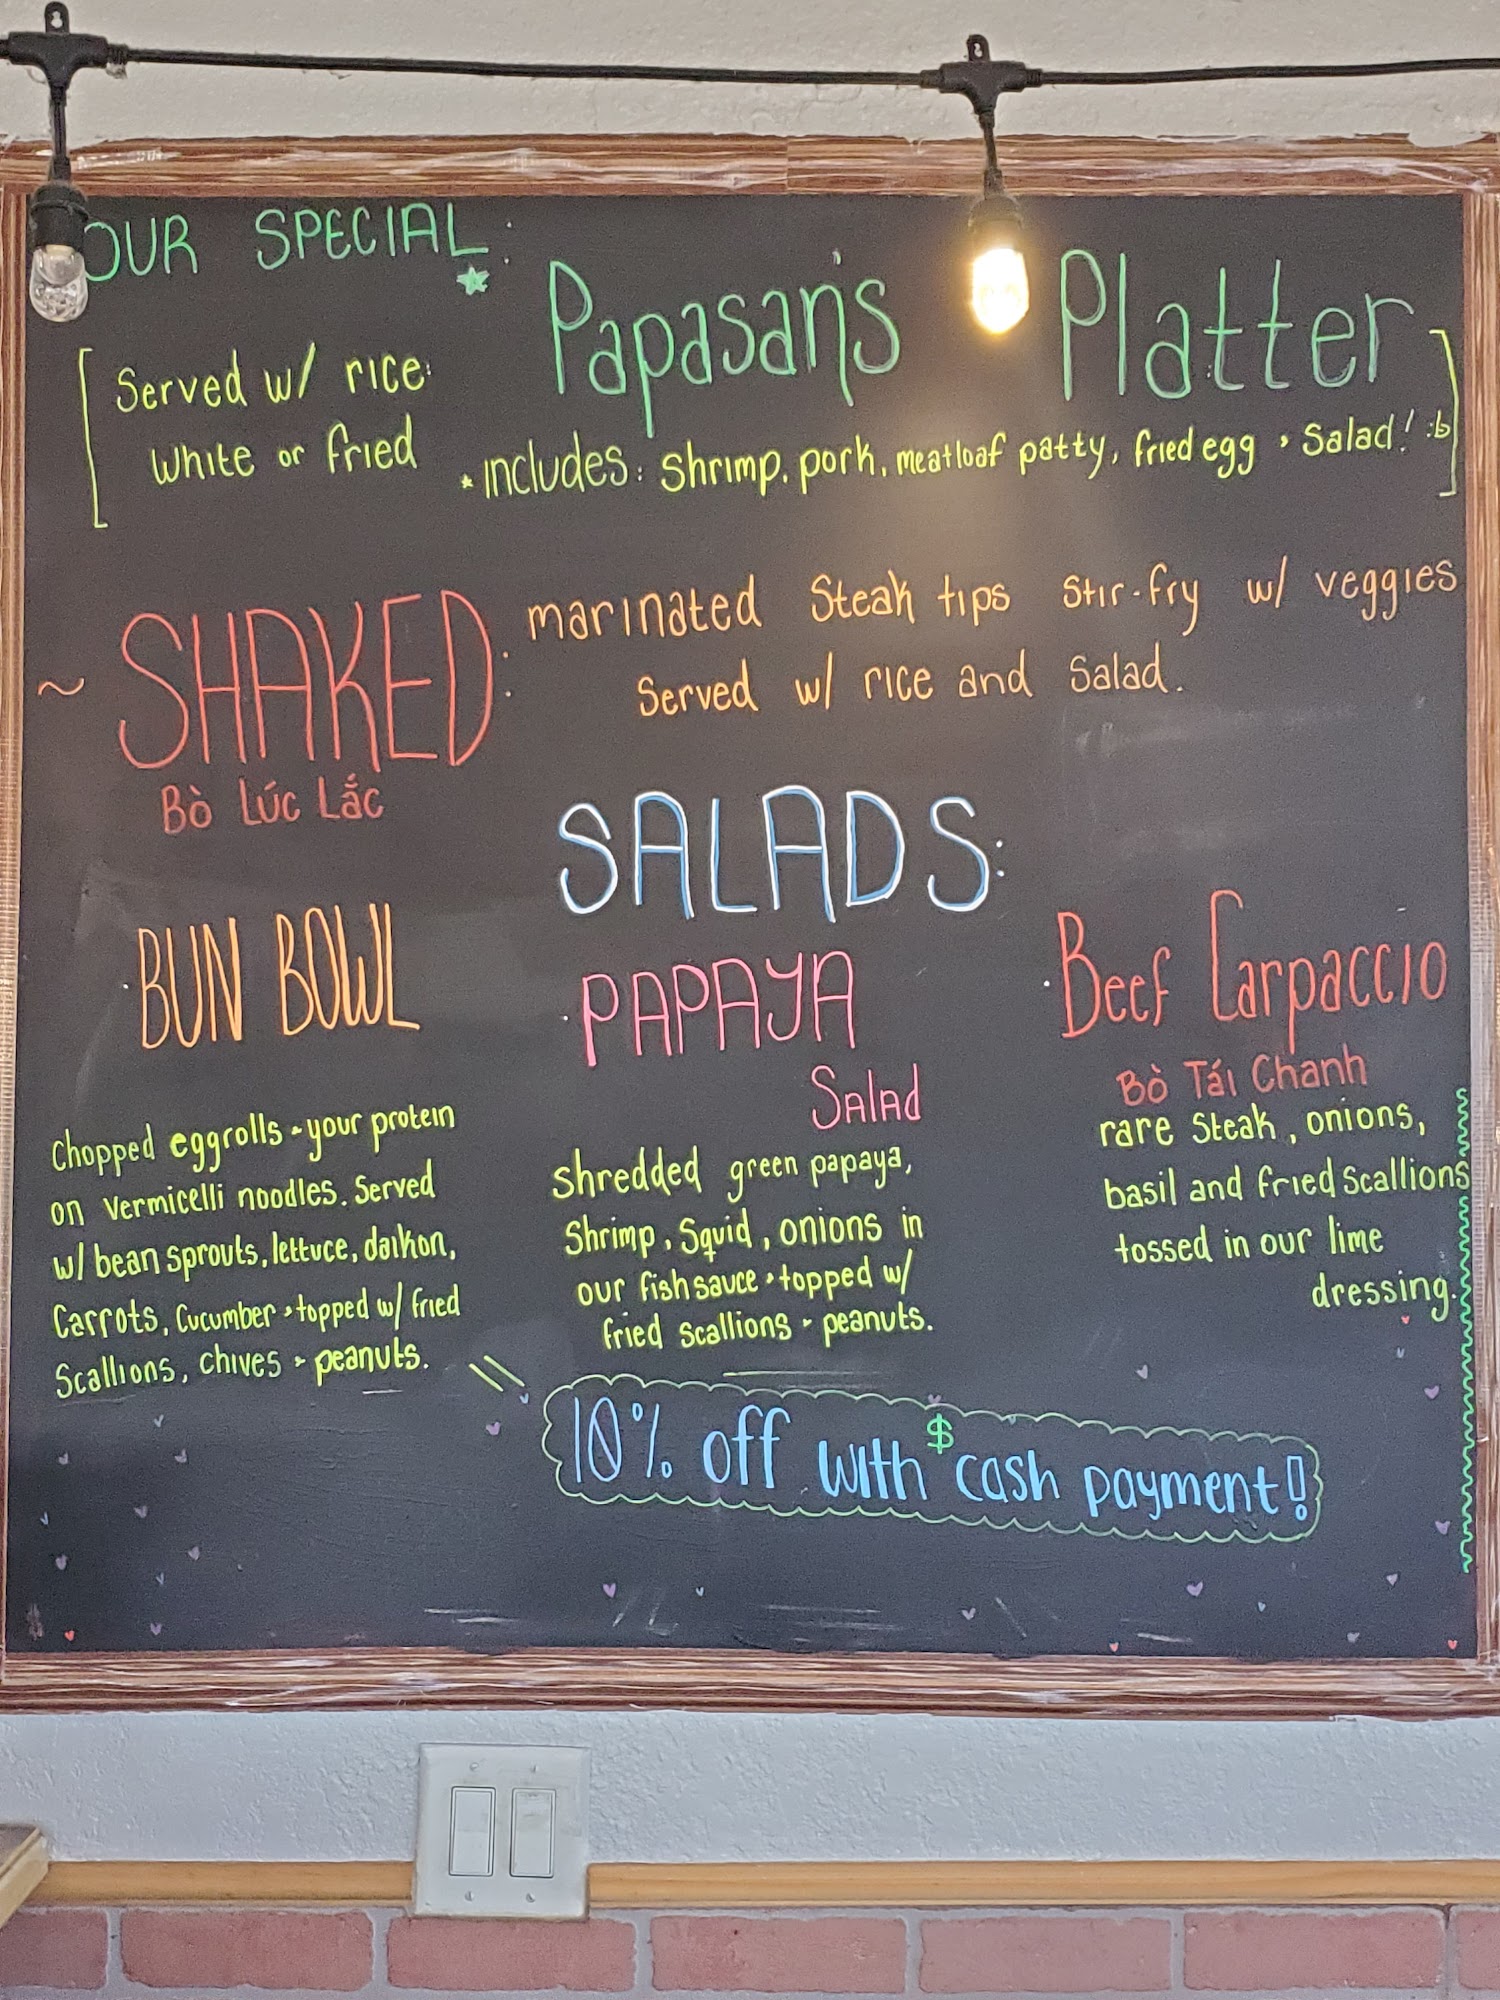 OUR SPECIAL:
Papasan's Platter
Served w/ rice:
White or fried
* includes: Shrimp, pork, meatloaf patty, fried egg + Salad! :b
~ SHAKED:
Bò Lúc Lắc
marinated Steak tips Stir-fry w/ veggies
Served w/ rice and Salad.
SALADS:
BUN BOWL
Chopped eggrolls + your protein
on Vermicelli noodles. Served
w/ bean sprouts, lettuce, daikon,
Carrots, Cucumber + topped w/ fried
Scallions, chives + peanuts.
PAPAYA
Salad
Shredded green papaya,
Shrimp, Squid, onions in
our fish sauce + topped w/
fried Scallions + peanuts.
Beef Carpaccio
Bò Tái Chanh
rare Steak, onions,
basil and fried Scallions
tossed in our lime
dressing.
10% off with $ cash payment!